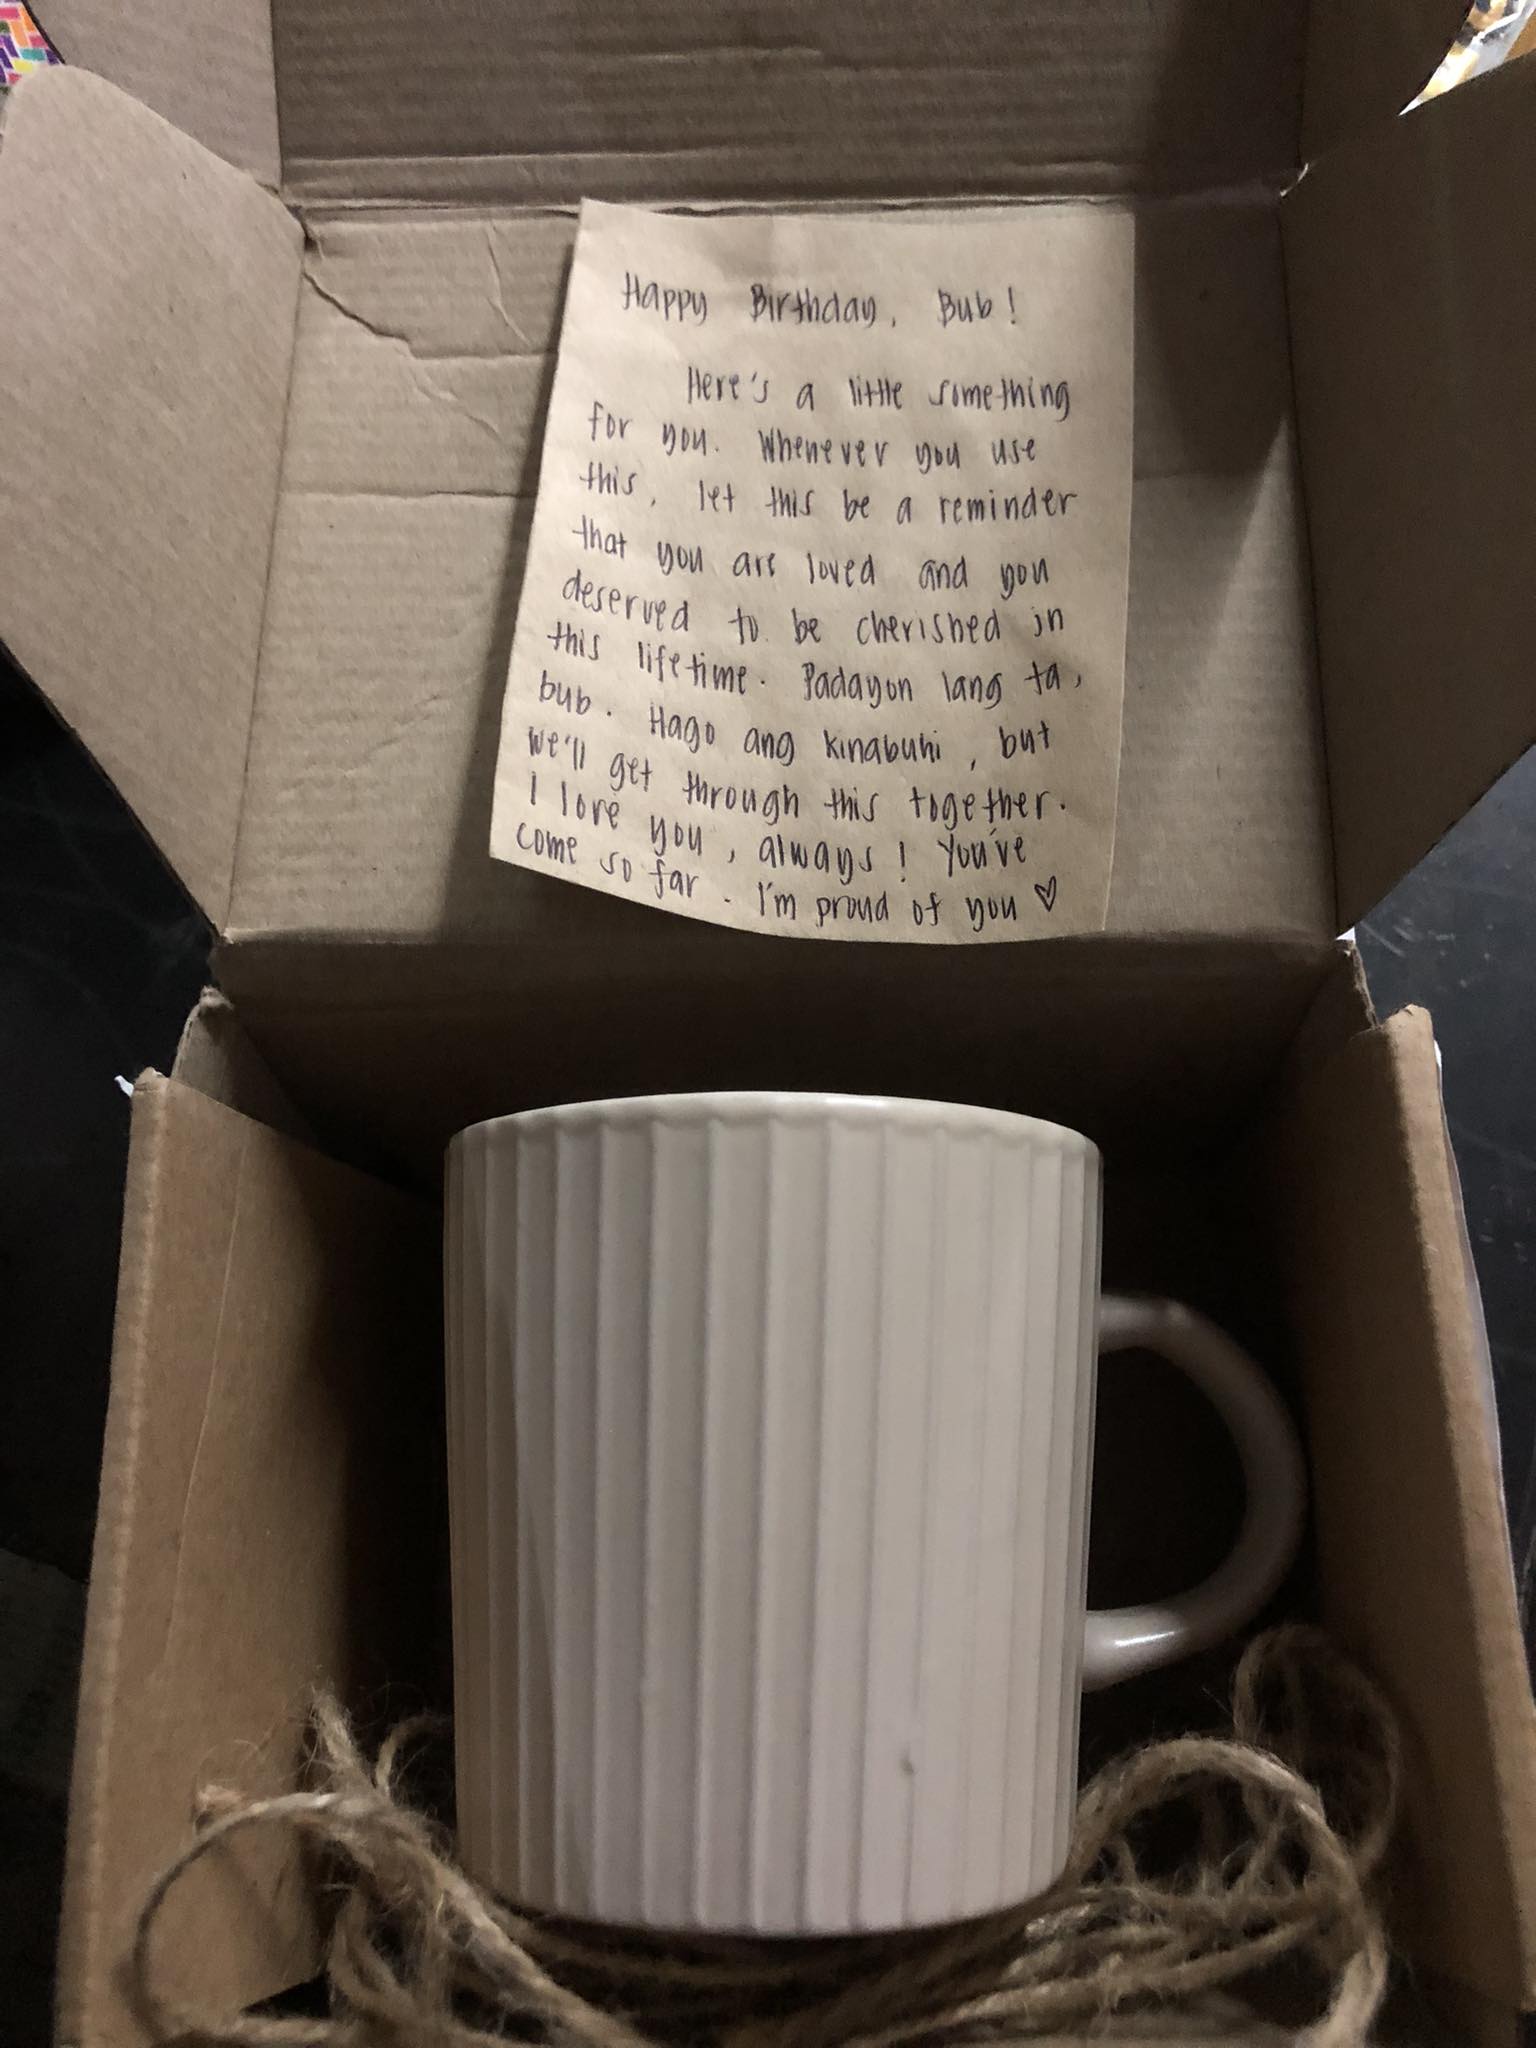 Happy Birthday, Bub!
Here's a little something
for you. Whenever you use
this, let this be a reminder
that you are loved and you
deserved to be cherished in
this lifetime. Padayon lang ta,
bub. Hago ang kinabuhi, but
we'll get through this together.
I love you, always! You've
come so far. I'm proud of you ♡